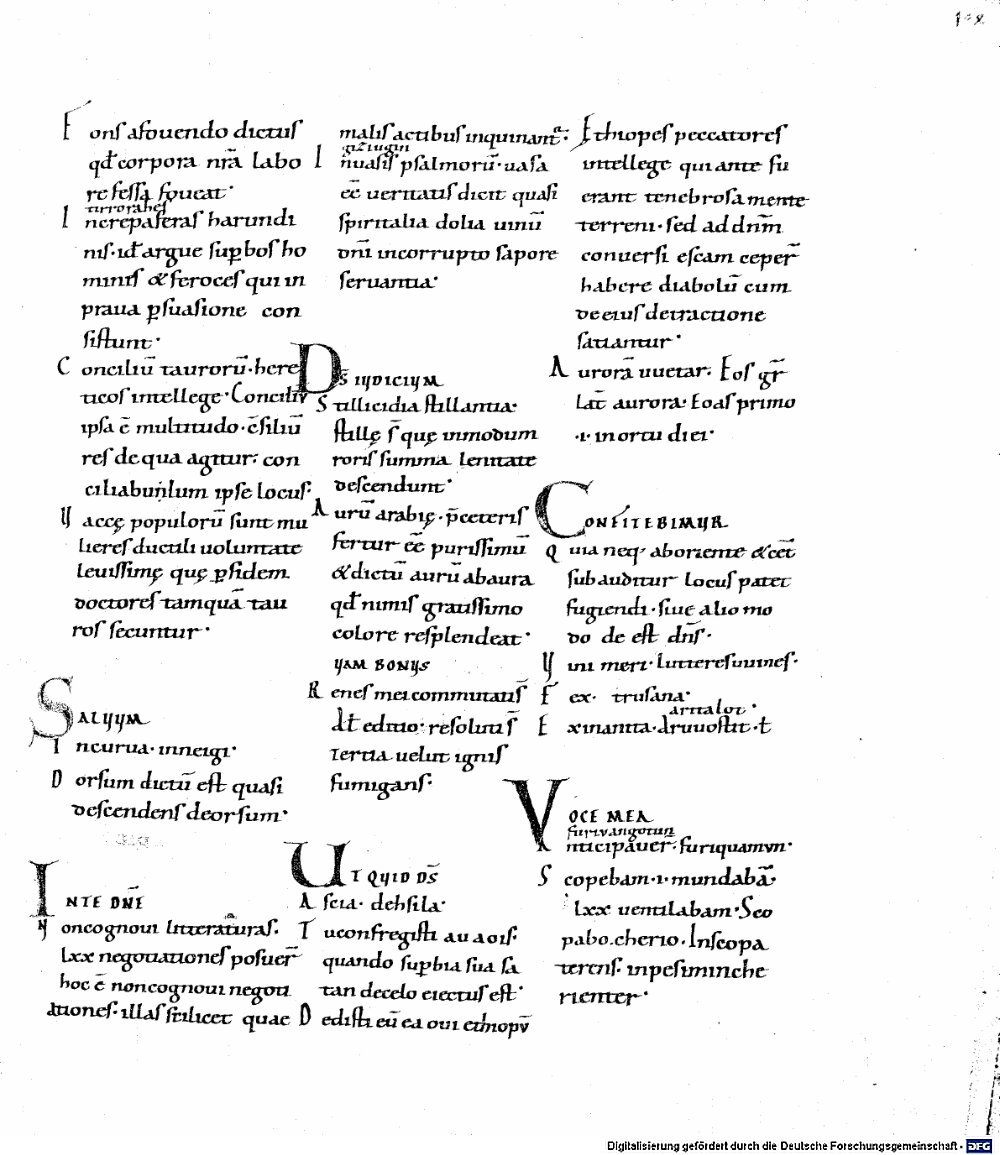 Fons afouendo dictus
qđ corpora nr̄a labo
re fessa foueat·
Increpa feras harundi
nis· id argue supbos ho
mines & feroces qui in
praua psuasione con
sistunt·
Conciliū taurorū· here
ticos intellege· Conciliū
ipsa ē multitudo· c̄siliū
res de qua agitur; con
ciliabulum ipse locus·
Uaccę populorū sunt mu
lieres ductili uoluntate
leuissimę quę pfidem
doctores tamquā tau
ros secuntur·
SALUUM
Incurua· inneigi·
Dorsum dictū est quasi
descendens deorsum·
INTE DN̄E
Noncognoui litteraturas·
lxx negotiationes posuer̄
hoc ē noncognoui negoti
ationes· illas scilicet quae
malis actibus inquinant·
In̄uasis psalmorū· uasa
eē ueritatis dicit quasi
spiritalia dolia uinū
dnī incorrupto sapore
seruantia·
DS̄ IUDICIUM
Stillicidia stillantia·
stillę s̄ quę inmodum
roris summa lenitate
descendunt·
Aurū arabię· p̄ceteris
fertur eē purissimū
& dictū aurū abaura
qđ nimis gratissimo
colore resplendeat·
QUAM BONUS
Renes mei commutatis̄
đt editio· resolutis̄
tertia uelut ignis
fumigans·
UT QUID DS̄
Ascia· dehsila·
Tu confregisti
quando supbia sua sa
tan decelo eiectus est·
Dedisti eū ea oui ethiopū
Ethiopes peccatores
intellege qui ante fu
erant tenebrosa mente
terreni· sed ad dnm̄
conuersi escam ceper̄
habere diabolū cum
de eius detractione
satiantur·
Aurorā uuetar· Eos gr̄
Lat̄ aurora· Eoas primo
·i· in ortu diei·
CONFITEBIMUR
Quia neq· aboriente & cet̄
subauditur locus patet
fugiendi· siue alio mo
do de est dn̄s·
Uini meri· lutteres uuines·
Fex· trusana·
aritalot·
Exinanita·
VOCE MEA
furivangotun
Anticipauer̄· furiquamun·
Scopebam·i·mundabā·
lxx uentilabam· Sco
pabo· cherio· Inscopa
terens· inpesiminche
rienter·
Digitalisierung gefördert durch die Deutsche Forschungsgemeinschaft - DFG